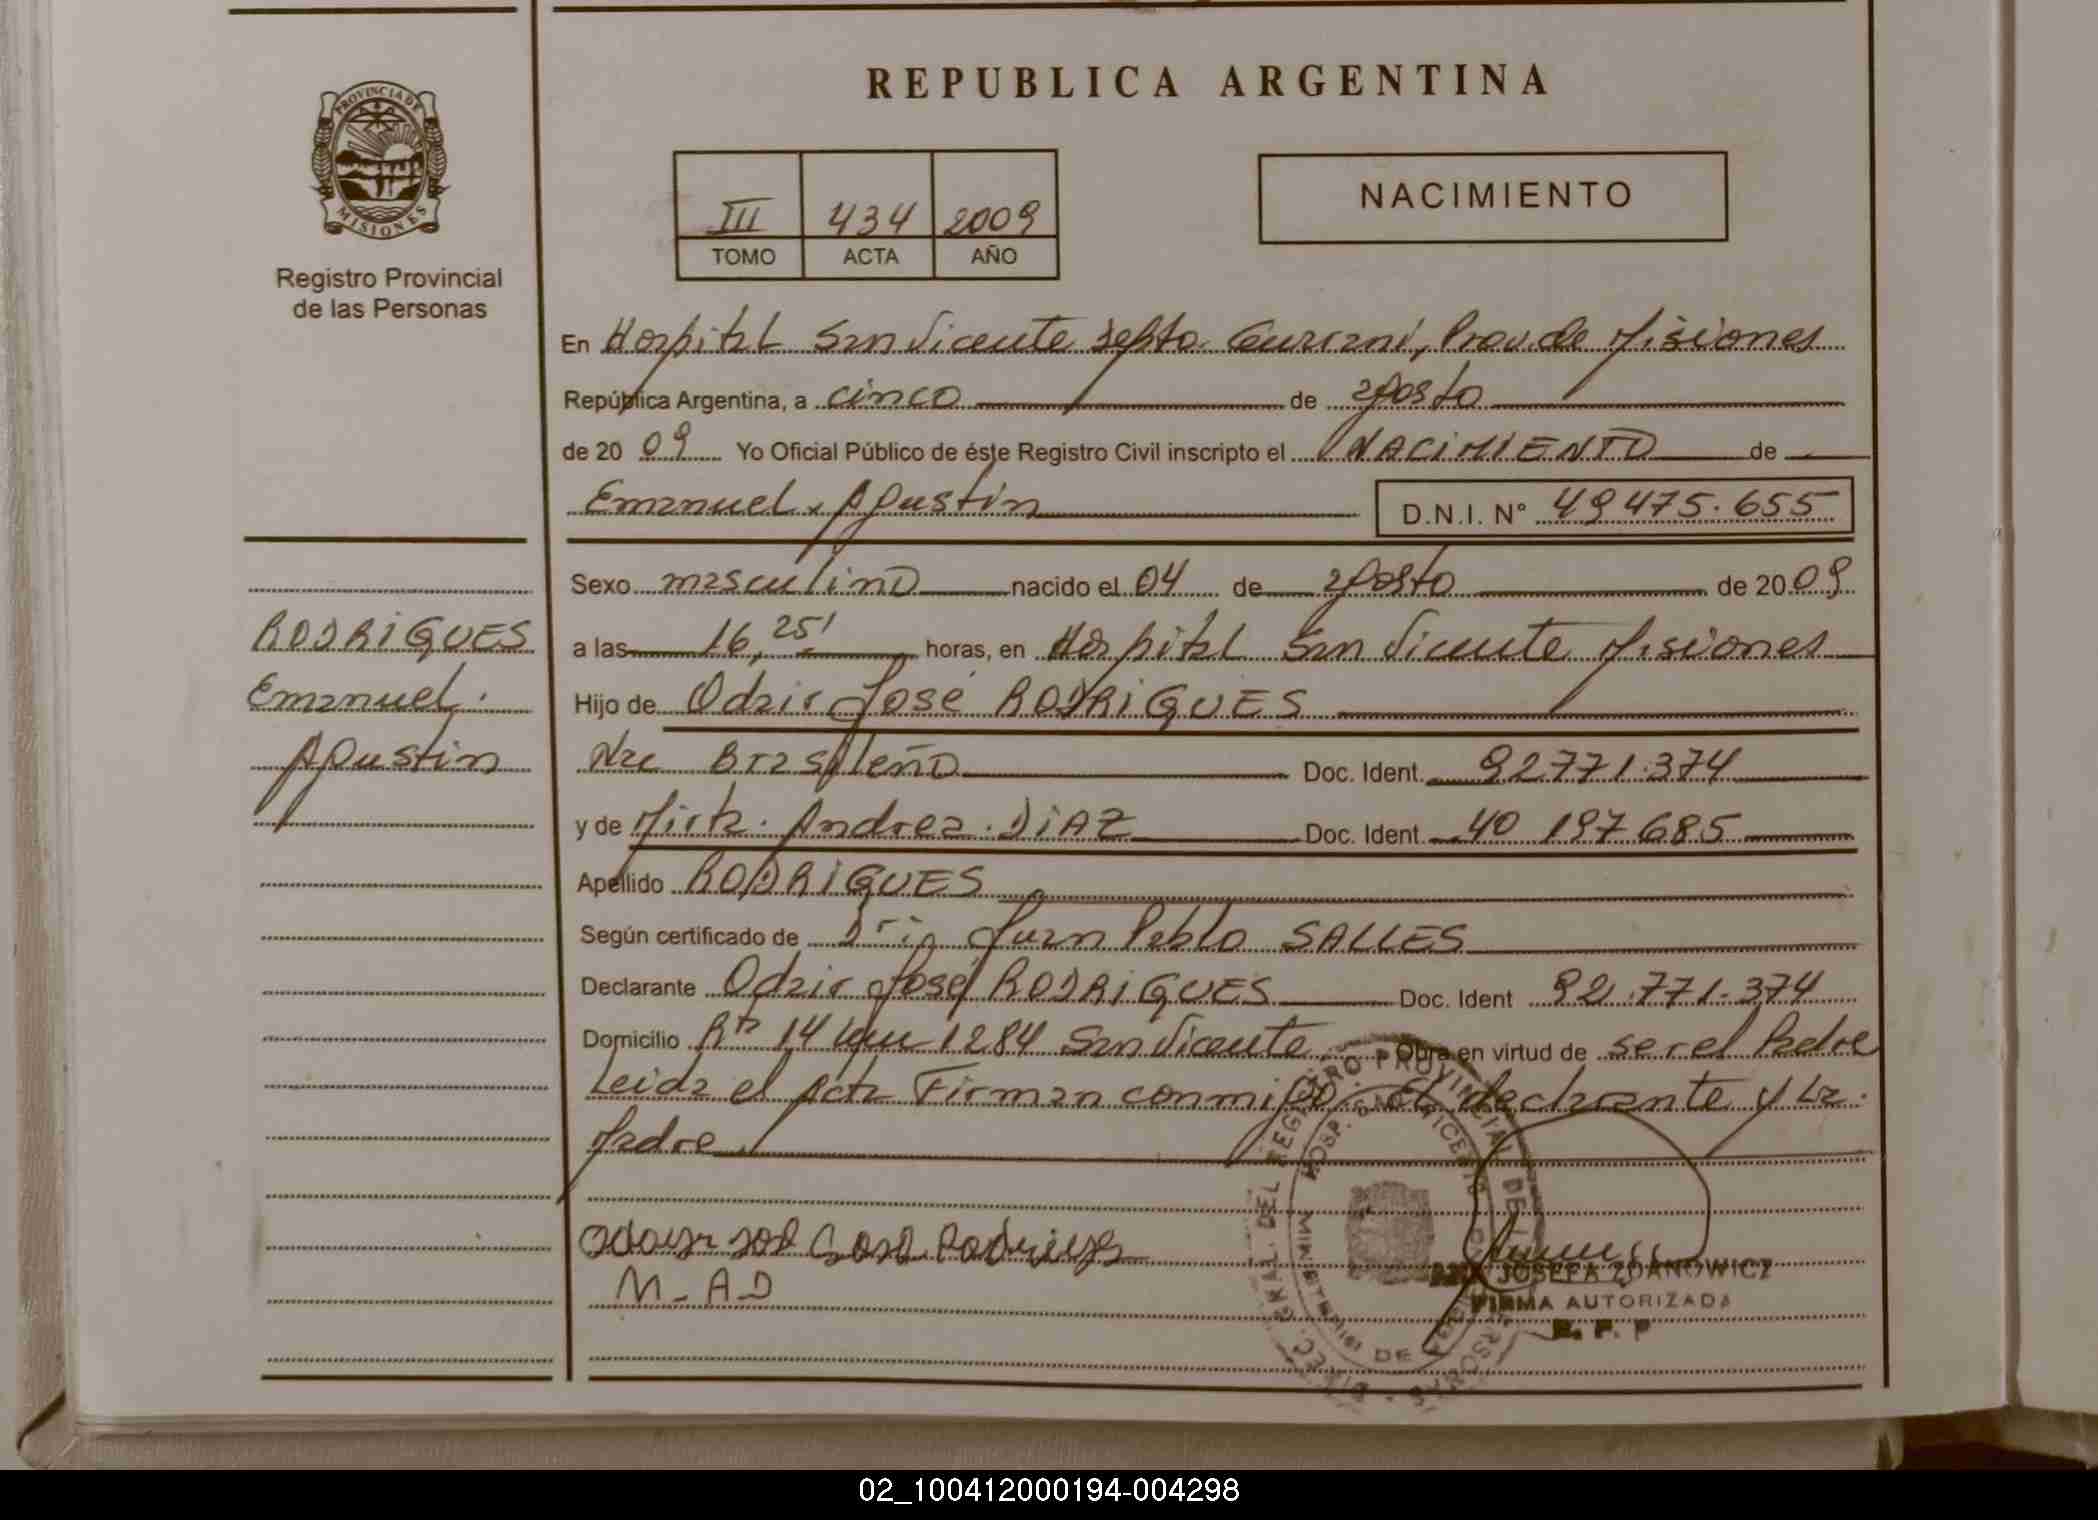 REPUBLICA ARGENTINA
PROVINCIA DE
MISIONES
Registro Provincial
de las Personas
III 434 2009
TOMO ACTA AÑO
NACIMIENTO
En Hospital San Vicente Depto. Guaraní, Prov. de Misiones
República Argentina, a cinco de agosto
de 20 09 Yo Oficial Público de éste Registro Civil inscripto el NACIMIENTO de
Emanuel Agustín
D.N.I. N° 49 475.655
Sexo masculino nacido el 04 de agosto de 20 09
a las 16,25' horas, en Hospital San Vicente Misiones
Hijo de Odair José RODRIGUES
Nac Brasileño Doc. Ident. 92771.374
y de Mirta Andrea DIAZ Doc. Ident. 40 197685
Apellido RODRIGUES
Según certificado de Juan Pablo SALLES
Declarante Odair José RODRIGUES Doc. Ident 92.771.374
Domicilio Rta 14 km 1284 San Vicente Obra en virtud de ser el Padre
Leida el Acta Firman conmigo El declarante y La
Madre
RODRIGUES
Emanuel
Agustín
M-AD
DIREC. GRAL. DEL REGISTRO PROVINCIAL DE LAS PERSONAS
HOSP. SAN VICENTE
MINISTERIO DE
JOSEFA ZDANOWICZ
FIRMA AUTORIZADA
R. P. P
02_100412000194-004298